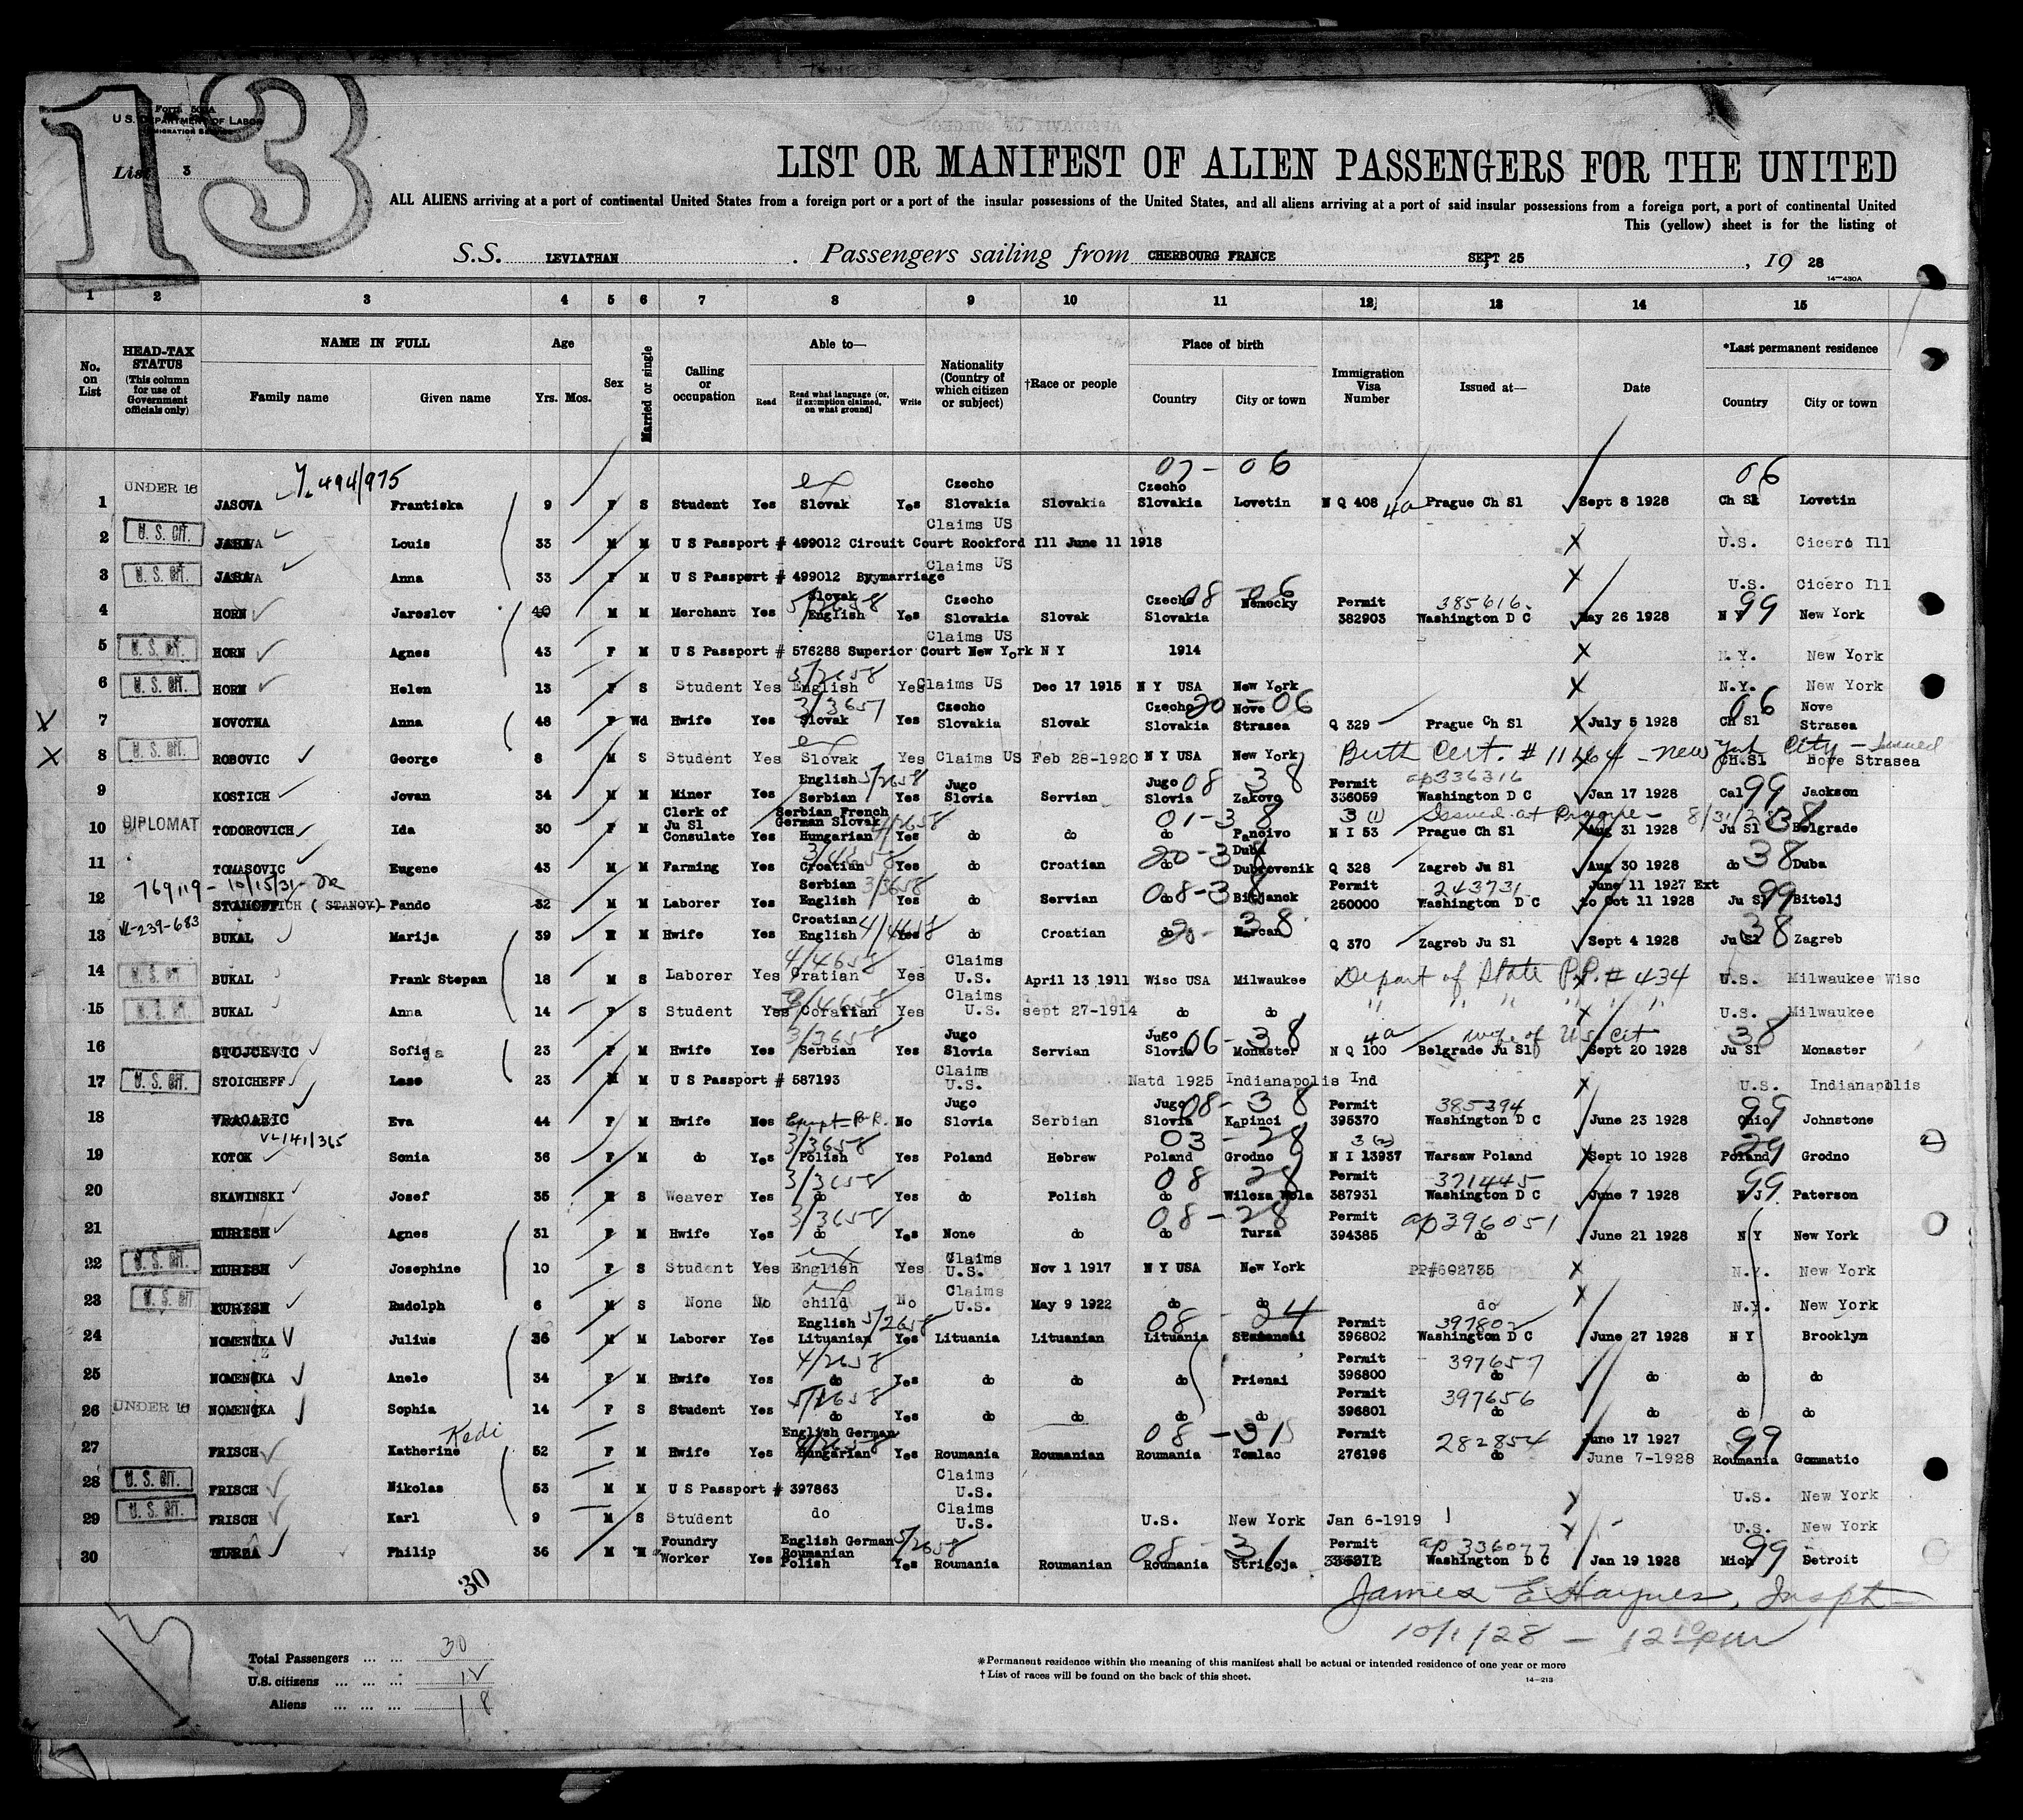 13
Form 500A
U. S. DEPARTMENT OF LABOR
IMMIGRATION SERVICE
List 3
LIST OR MANIFEST OF ALIEN PASSENGERS FOR THE UNITED
ALL ALIENS arriving at a port of continental United States from a foreign port or a port of the insular possessions of the United States, and all aliens arriving at a port of said insular possessions from a foreign port, a port of continental United
This (yellow) sheet is for the listing of
S.S. LEVIATHAN . Passengers sailing from CHERBOURG FRANCE SEPT 25 , 19 28
14—430A
1 2 3 4 5 6 7 8 9 10 11 12 13 14 15
No. on List
HEAD-TAX STATUS (This column for use of Government officials only)
NAME IN FULL
Family name Given name
Age
Yrs. Mos.
Sex
Married or single
Calling or occupation
Able to—
Read
Read what language (or, if exemption claimed, on what ground)
Write
Nationality (Country of which citizen or subject)
†Race or people
Place of birth
Country City or town
Immigration Visa Number
Issued at—
Date
*Last permanent residence
Country City or town
494/975 07 - 06 06
1 UNDER 16 JASOVA Frantiska 9 F S Student Yes Slovak Yes Czecho Slovakia Slovakia Czecho Slovakia Lovetin N Q 408 4a Prague Ch Sl Sept 8 1928 Ch Sl Lovetin
2 U. S. CIT. Louis 33 M M U S Passport # 499012 Circuit Court Rockford Ill June 11 1918 Claims US U.S. Cicero Ill
3 U. S. CIT. Anna 33 F M U S Passport # 499012 Claims US U.S. Cicero Ill
4 HORN Jaroslov 40 M M Merchant Yes Slovak English 5/2658 Yes Czecho Slovakia Slovak Czecho Slovakia 08 06 Nemocky Permit 382903 385616 Washington D C May 26 1928 N Y 99 New York
5 U. S. CIT. HORN Agnes 43 F M U S Passport # 576288 Superior Court New York N Y 1914 Claims US N.Y. New York
6 U. S. CIT. HORN Helen 13 F S Student Yes English 5/2658 Yes Claims US Dec 17 1915 N Y USA New York N.Y. New York
7 NOVOTNA Anna 48 F Wd Hwife Yes Slovak 3/3657 Yes Czecho Slovakia Slovak Czecho Slovakia 20 - 06 Nove Strasea Q 329 Prague Ch Sl July 5 1928 Ch Sl 06 Nove Strasea
8 U. S. CIT. ROBOVIC George 8 M S Student Yes Slovak Yes Claims US Feb 28-1920 N Y USA New York Birth Cert. # 11464 - New York City - Issued CH.Sl Nove Strasea
9 KOSTICH Jovan 34 M M Miner Yes English Serbian 5/2658 Yes Jugo Slovia Servian Jugo Slovia 08 38 Zakovo Permit 336059 ap336316 Washington D C Jan 17 1928 Cal 99 Jackson
10 DIPLOMAT TODOROVICH Ida 30 F M Clerk of Ju Sl Consulate Yes Serbian French German Slovak Hungarian 4/2658 Yes do do 01-38 do Pancivo 3 (1) N I 53 Issued at Prague - 8/31/28 Prague Ch Sl Aug 31 1928 Ju Sl 38 Belgrade
11 TOMASOVIC Eugene 43 M M Farming Yes Croatian 3/4658 Yes do Croatian 20-38 do Duba Dubrovenik Q 328 Zagreb Ju Sl Aug 30 1928 do 38 Duba
12 769119 - 10/15/31 (STANOV) Pando 32 M M Laborer Yes Serbian English 3/3658 Yes do Servian 08-38 do Permit 250000 243731 Washington D C June 11 1927 Ext to Oct 11 1928 Ju Sl 99 Bitolj
13 VL-239-683 BUKAL Marija 39 Hwife Yes Croatian English 4/4658 Yes do Croatian 20- 38 do Q 370 Zagreb Ju Sl Sept 4 1928 Ju Sl 38 Zagreb
14 U. S. CIT. BUKAL Frank Stepan 18 M S Laborer Yes Cratian 4/4658 Yes Claims U.S. April 13 1911 Wisc USA Milwaukee Depart of State P.P. # 434 U.S. Milwaukee Wisc
15 U. S. CIT. BUKAL Anna 14 F S Student Yes Yes Claims U.S. sept 27-1914 do do " " " " " " U.S. Milwaukee
16 STOJCEVIC 23 F M Hwife Yes Serbian 3/3658 Yes Jugo Slovia Servian Jugo Slovia 06-38 Monaster 4a N Q 100 wife of U.S. Cit Belgrade Ju Sl Sept 20 1928 Ju Sl 38 Monaster
17 U. S. CIT. STOICHEFF 23 M M U S Passport # 587193 Claims U.S. Natd 1925 Indianapolis Ind U.S. Indianapolis
18 Eva 44 F M Hwife No Jugo Slovia Serbian Jugo Slovia 08-38 Kapinci Permit 395370 385394 Washington D C June 23 1928 Ohio 99 Johnstone
19 VL/141/365 KOTOK Sonia 36 F M do Yes Polish 3/3658 Yes Poland Hebrew Poland 03 - 28 Grodno 3 (2) N I 13937 Warsaw Poland Sept 10 1928 Poland 29 Grodno
20 SKAWINSKI Josef 35 M S Weaver Yes do 3/3658 Yes do Polish do 08 28 Permit 387931 371445 Washington D C June 7 1928 N J 99 Paterson
21 Agnes 31 F M Hwife Yes do 3/3658 Yes None do do 08-28 Turza Permit 394385 ap396051 do June 21 1928 N Y New York
22 U. S. CIT. Josephine 10 F S Student Yes English Yes Claims U.S. Nov 1 1917 N Y USA New York PP#602735 N.Y. New York
23 U. S. CIT. Rudolph 6 M S None No child No Claims U.S. May 9 1922 do do do N.Y. New York
24 Julius 36 M M Laborer Yes English Lituanian 5/2658 Yes Lituania Lituanian Lituania 08 - 24 Permit 396802 397802 Washington D C June 27 1928 N Y Brooklyn
25 Anele 34 F M Hwife Yes do 4/2658 Yes do do do Prienai Permit 396800 397657 do do do do
26 UNDER 16 Sophia 14 F S Student Yes do 5/2658 Yes do do do do Permit 396801 397656 do do do do
27 FRISCH Katherine Kedi 52 F M Hwife Yes English German Hungarian Yes Roumania Roumanian Roumania 08 - 31 Tomlac Permit 276196 282854 do June 17 1927 June 7-1928 Roumania 99 Gommatic
28 U. S. CIT. FRISCH Nikolas 53 M M U S Passport # 397863 Claims U.S. U.S. New York
29 U. S. CIT. FRISCH Karl 9 M S Student do Claims U.S. U.S. New York Jan 6-1919 U.S. New York
30 Philip 36 M M Foundry Worker Yes English German Roumanian Polish 5/2658 Yes Roumania Roumanian Roumania 08 - 31 Strigoja Permit ap336077 Washington D C Jan 19 1928 Mich 99 Detroit
30
James E Haynes, Inspt
10/1/28 - 12 10 pm
Total Passengers 30
U.S. citizens 12
Aliens 18
*Permanent residence within the meaning of this manifest shall be actual or intended residence of one year or more
†List of races will be found on the back of this sheet.
14—213